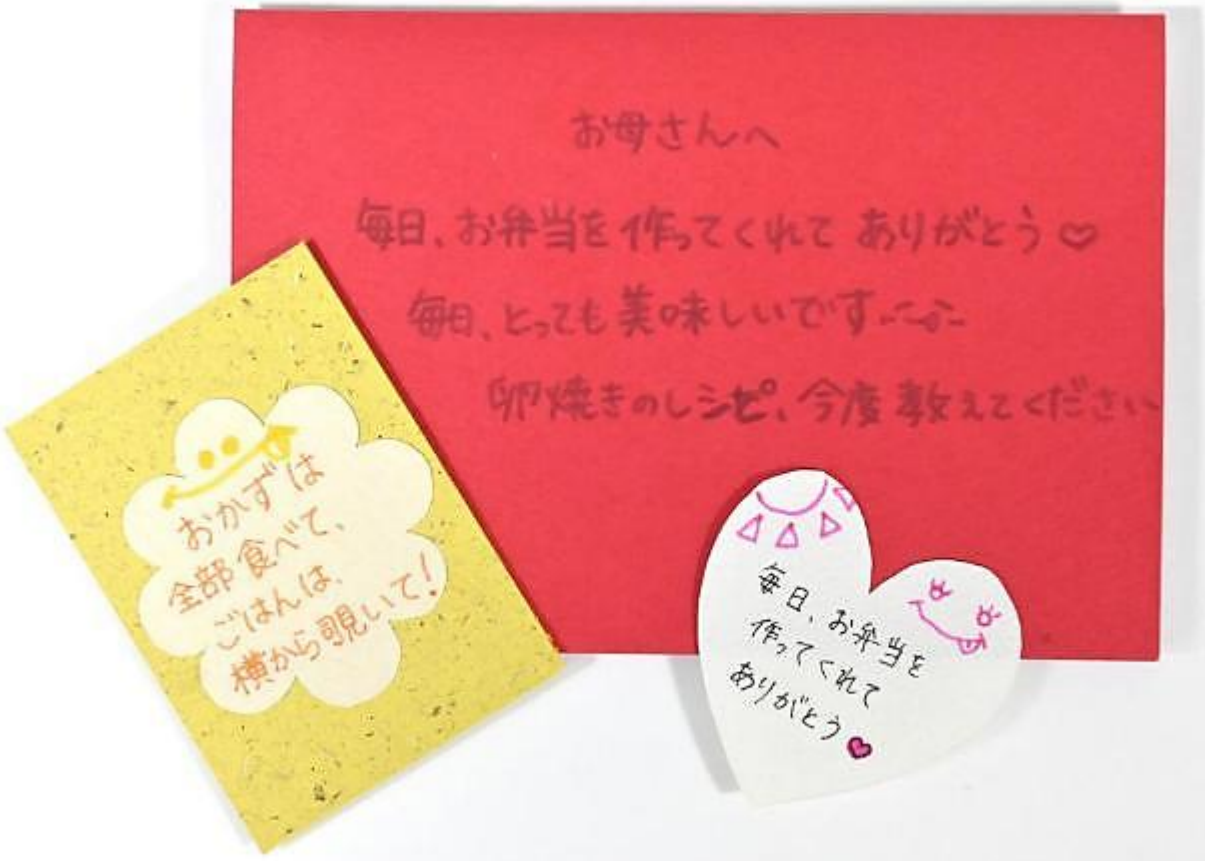 お母さんへ
毎日、お弁当を作ってくれて ありがとう♡
毎日、とっても美味しいです
卵焼きのレシピ、今度教えてください
おかずは
全部食べて、
ごはんは、
横から覗いて!
毎日、お弁当を
作ってくれて
ありがとう♥